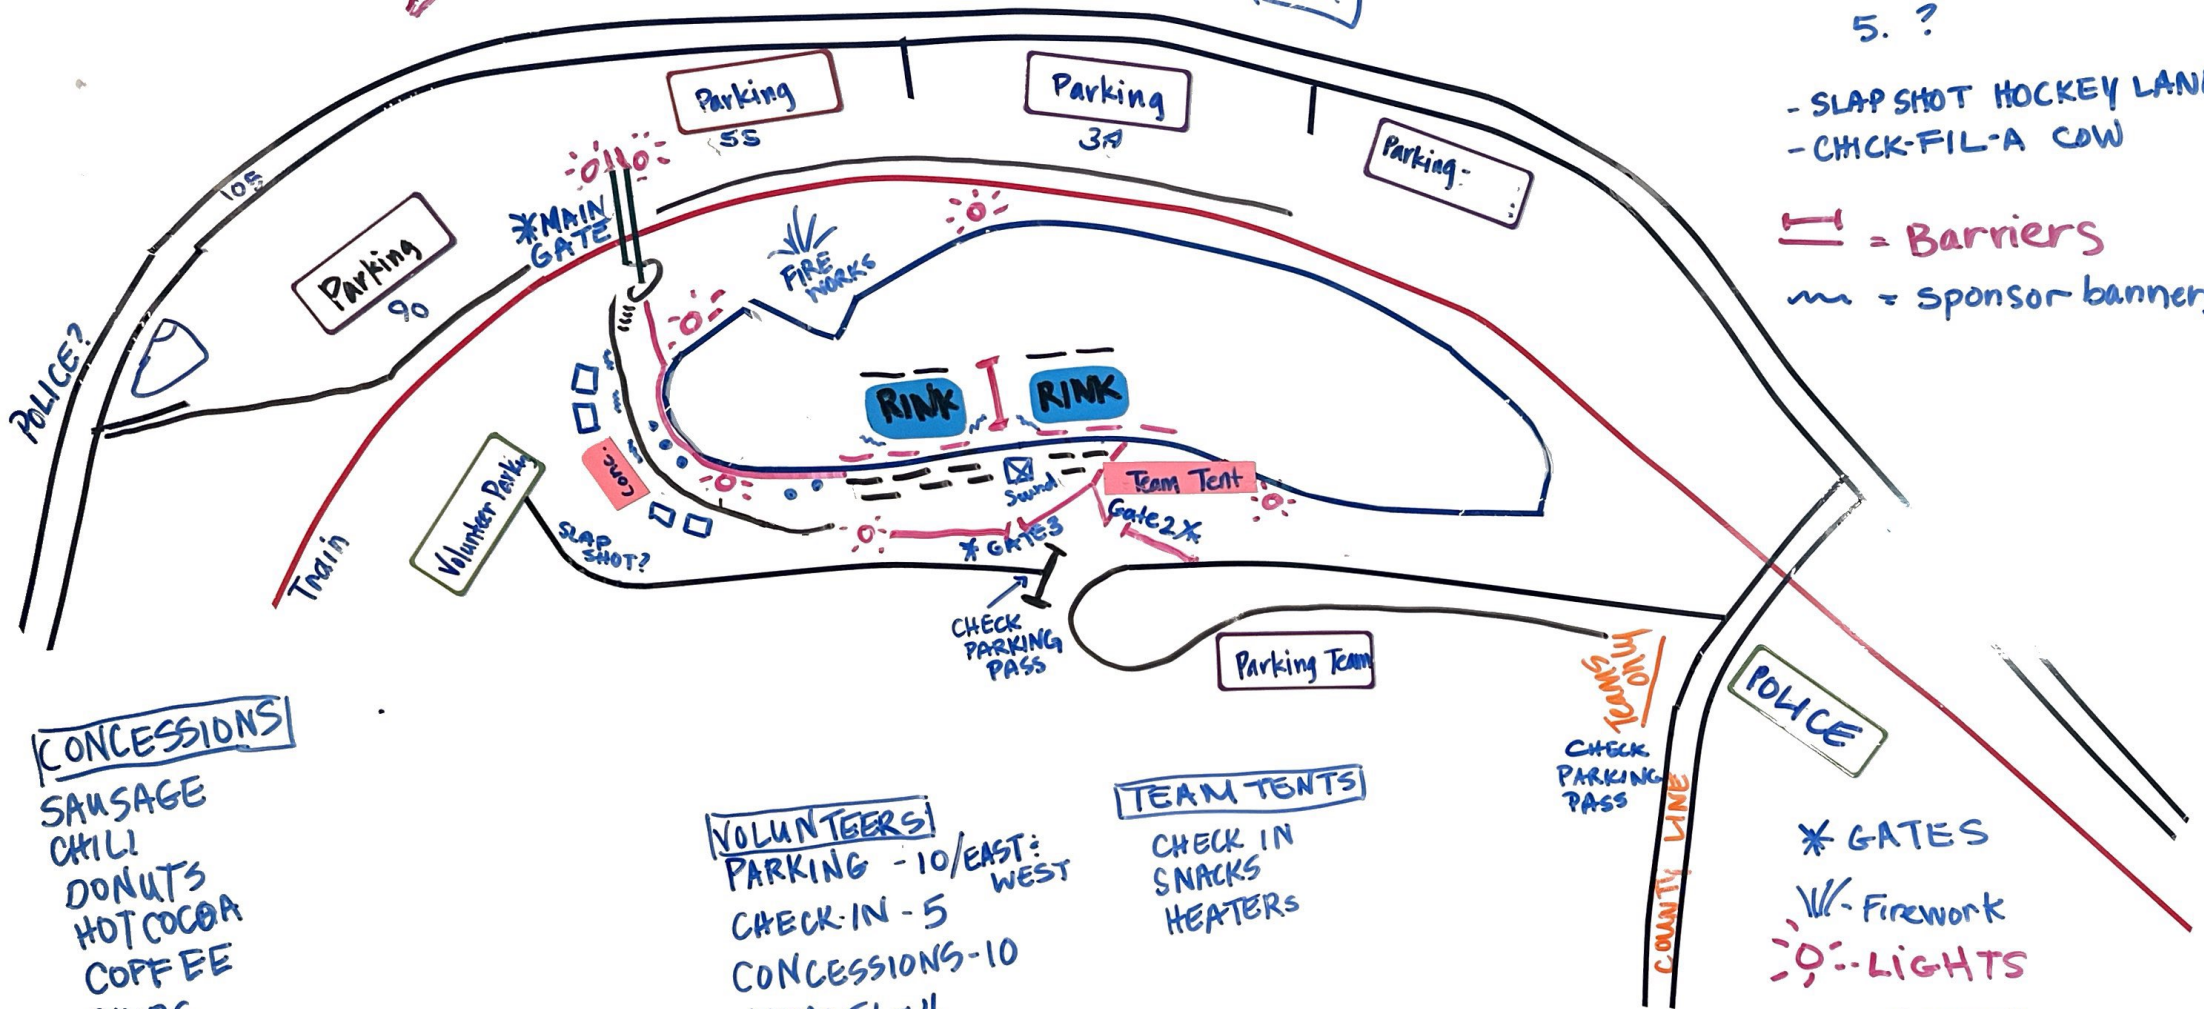 5. ?
- SLAPSHOT HOCKEY LAN
- CHICK-FIL-A COW
= Barriers
= sponsor banner
Parking
55
Parking
Parking-
105
Parking
90
*MAIN
GATE
FIRE
WORKS
POLICE?
RINK
RINK
Conc.
Sound
Team Tent
Gate2*
* GATE3
Volunteer Parkin
SLAP
SHOT?
Train
CHECK
PARKING
PASS
Parking Team
TEAMS
ONLY
POLICE
CHECK
PARKING
PASS
COUNTY LINE
CONCESSIONS
SAUSAGE
CHILI
DONUTS
HOT COCOA
COFFEE
VOLUNTEERS
PARKING - 10/EAST:
WEST
CHECK-IN - 5
CONCESSIONS-10
TEAM TENTS
CHECK IN
SNACKS
HEATERS
* GATES
- Firework
-- LIGHTS